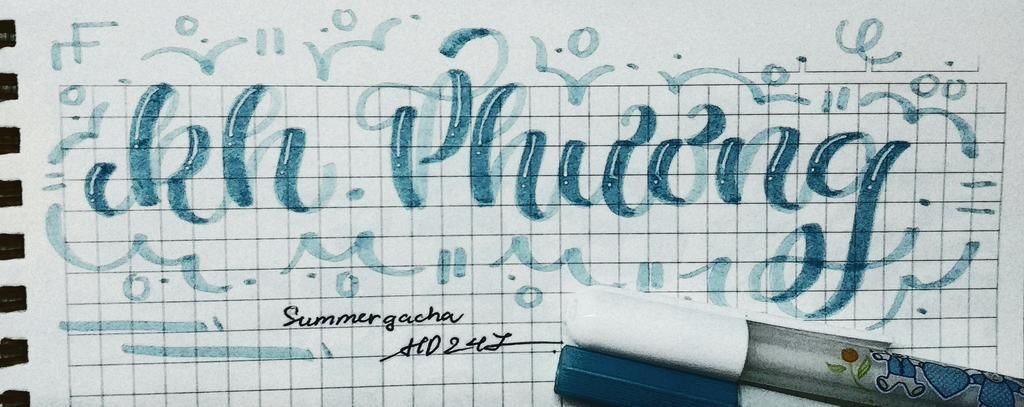 kh. Phương
Summergacha